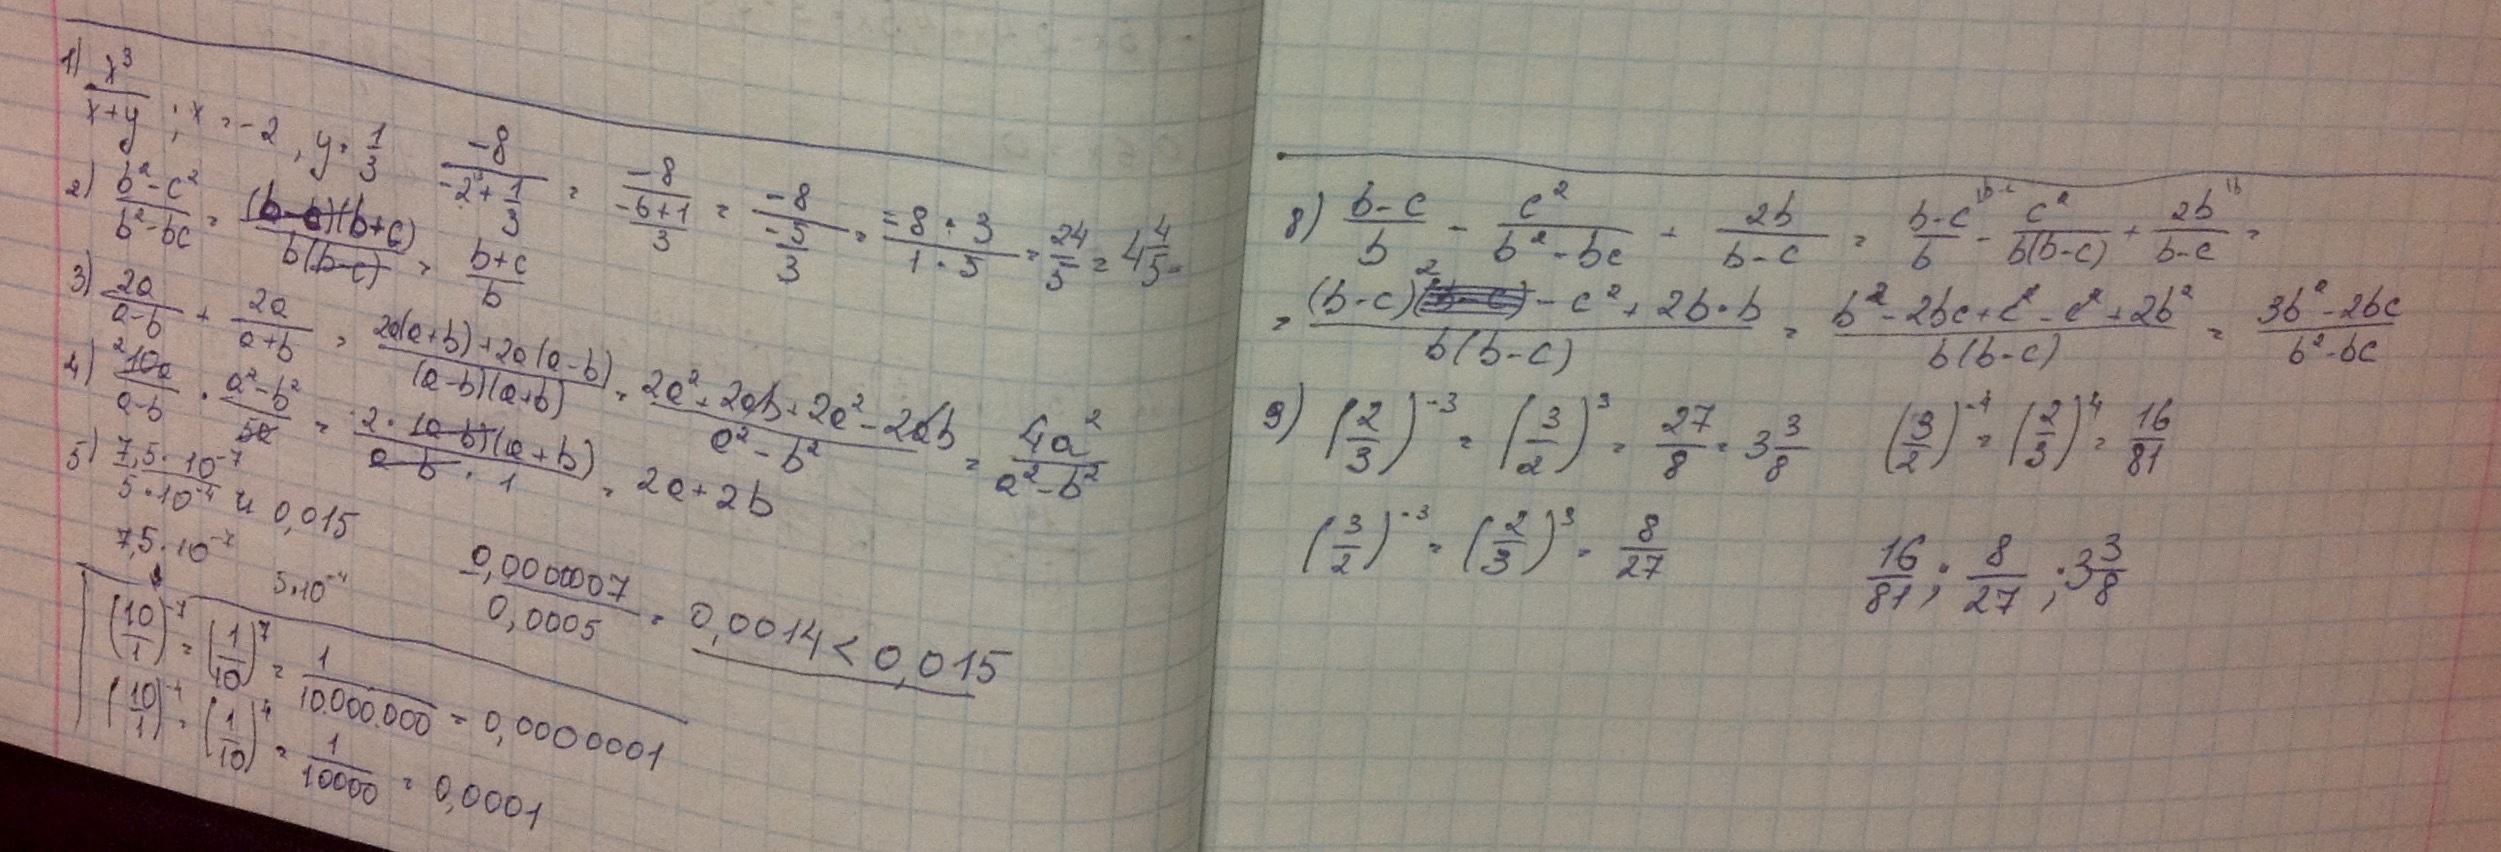 1) x³/(x+y) ; x = -2, y = 1/3   -8/(-2 + 1/3) = -8/((-6+1)/3) = -8/(-5/3) = (-8 · 3)/(1 · 5) = 24/5 = 4 4/5 =
2) (b² - c²)/(b² - bc) = ((b-c)(b+c))/(b(b-c)) = (b+c)/b
3) 2a/(a-b) + 2a/(a+b) = (2a(a+b) + 2a(a-b))/((a-b)(a+b)) = (2a² + 2ab + 2a² - 2ab)/(a² - b²) = 4a²/(a² - b²)
4) 10a/(a-b) · (a² - b²)/5a = (2 · (a-b)(a+b))/(a-b · 1) = 2a + 2b
5) (7,5 · 10⁻⁷)/(5 · 10⁻⁴) и 0,015
7,5 · 10⁻⁷   5 · 10⁻⁴   0,0000007/0,0005 = 0,0014 < 0,015
(10/1)⁻⁷ = (1/10)⁷ = 1/10.000.000 = 0,0000001
(10/1)⁻⁴ = (1/10)⁴ = 1/10000 = 0,0001
8) (b-c)/b - c²/(b² - bc) + 2b/(b-c) = (b-c)/b - c²/(b(b-c)) + 2b/(b-c) =
= ((b-c)² - c² + 2b · b)/(b(b-c)) = (b² - 2bc + c² - c² + 2b²)/(b(b-c)) = (3b² - 2bc)/(b² - bc)
9) (2/3)⁻³ = (3/2)³ = 27/8 = 3 3/8   (3/2)⁻⁴ = (2/3)⁴ = 16/81
(3/2)⁻³ = (2/3)³ = 8/27   16/81 ; 8/27 ; 3 3/8